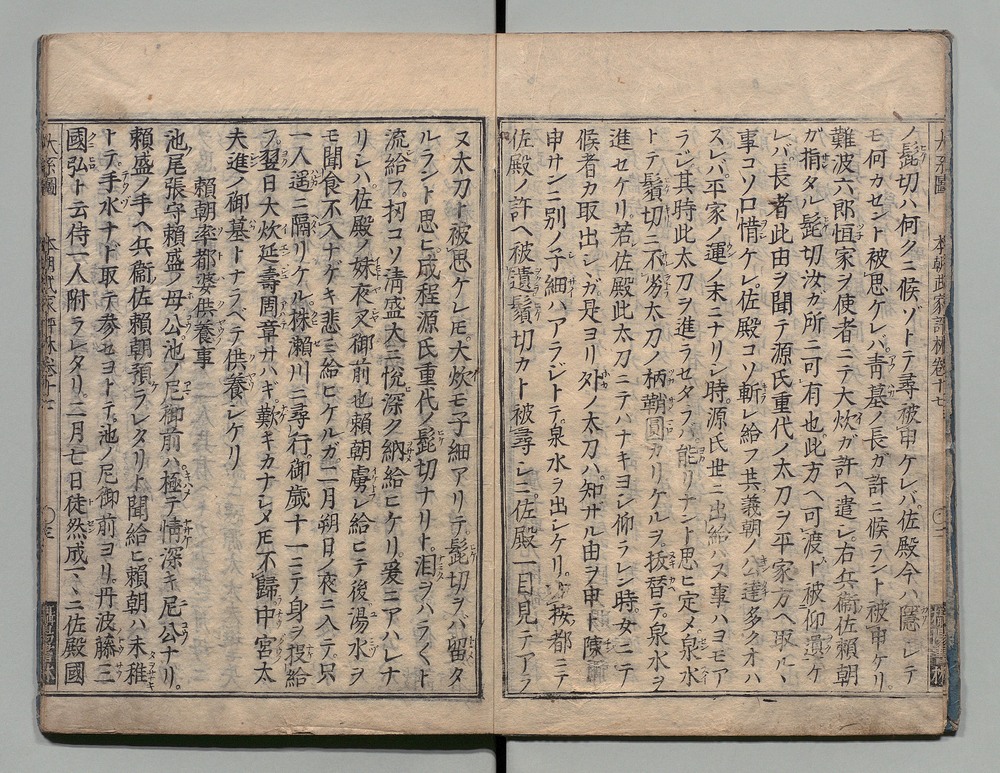 ノ髭切ハ何クニ候ゾトテ尋被申ケレバ佐殿今ハ隱シテ
モ何カセント被思ケレバ青墓ノ長ガ許ニ候ラント被申ケリ
難波六郎恒家ヲ使者ニテ大炊ガ許ヘ遣シ右兵衞佐賴朝
ガ指タル髭切汝カ所ニ可有也此方ヘ可渡ト被仰遺ケ
レバ長者此由ヲ聞テ源氏重代ノ太刀ヲ平家方ヘ取ル
事コソ口惜ケレ佐殿コソ斬レ給フ共義朝ノ公達多クオハ
スレバ平家ノ運ノ末ニナリシ時源氏世ニ出給ハヌ事ハヨモア
ラジ其時此太刀ヲ進ラセタラバ能リナント思ヒ定メ泉水
トテ鬚切ニ不劣太刀ノ柄鞘圓カリケルヲ拔替テ泉水ヲ
進セケリ若シ佐殿此太刀ニテハナキヨシ仰ラレン時女ニテ
候者カ取出シガ是ヨリ外ノ太刀ハ知サル由ヲ申ト陳
申サンニ別ノ子細ハアラジトテ泉水ヲ出シケリ按都ニテ
佐殿ノ許ヘ被遺鬚切カト被尋シニ佐殿一目見テアラ
ヌ太刀ト被思ケレモ大炊モ子細アリテ髭切ヲバ留タ
ルラント思ヒ成程源氏重代ノ髭切ナリト泪ヲハラト
流給フ扨コソ淸盛大ニ悦深ク納給ヒケリ爰ニアハレナ
リシハ佐殿ノ妹夜叉御前也賴朝虜レ給ヒテ後湯水ヲ
モ聞食不入ナゲキ悲ミ給ヒケルガ二月朔日ノ夜ニ入テ只
一人遥ニ隔リケル株瀬川ニ尋行御歲十一ニテ身ヲ投給
フ翌日大炊延壽周章サハギ歎キカナシメモ不歸中宮太
夫進ノ御墓トナラベテ供養シケリ
賴朝率都婆供養事
池尾張守賴盛ノ母公池ノ尼御前ハ極テ情深キ尼公ナリ
賴盛ノ手ヘ兵衞佐賴朝預ラレタリト聞給ヒ賴朝ハ未稚
トテ手水ナト取テ參セヨトテ池ノ尼御前ヨリ丹波藤三
國弘ト云侍一人附ラレタリ二月七日徒然成ニ佐殿國